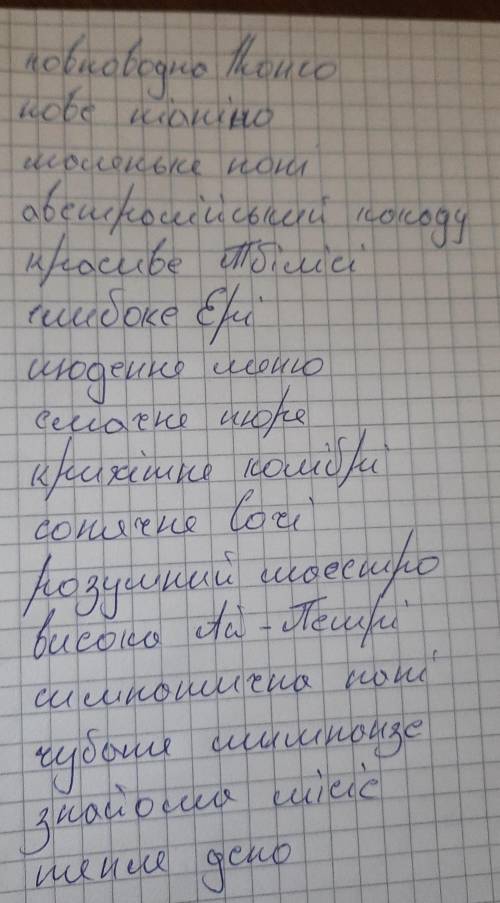 повноводна Конго
нове піаніно
маленьке поні
австралійський какаду
красиве Тбілісі
глибоке Ері
щоденне меню
смачне пюре
крихітне колібрі
сонячне Сочі
розумний маестро
висока Ай-Петрі
симпатична поні
чубате шимпанзе
знайома місіс
тепле депо